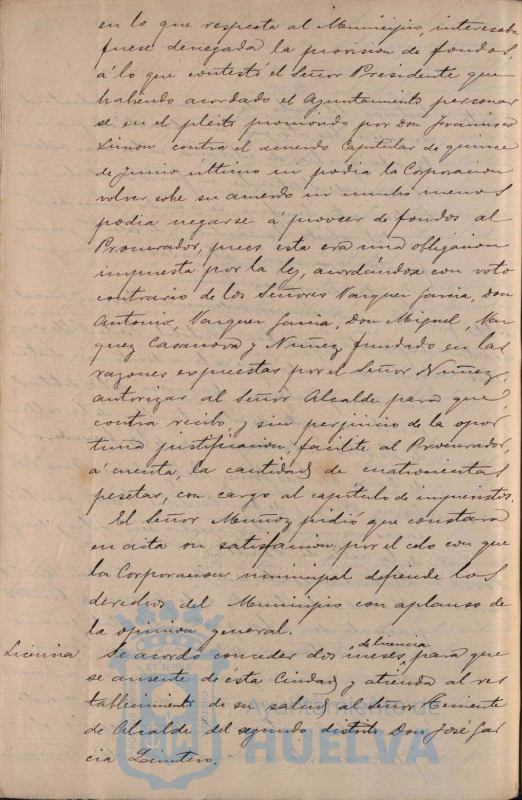 en lo que respecta al Municipio, interesaba
fuese denegada la provision de fondos,
á lo que contestó el Señor Presidente que
habiendo acordado el Ayuntamiento personar
se en el pleito promovido por Don Francisco
Limon contra el acuerdo Capitular de quince
de Junio último ni podia la Corporacion
volver sobre su acuerdo ni mucho menos
podia negarse á proveer de fondos al
Procurador, pues esta era una obligacion
impuesta por la ley, acordándose con voto
contrario de los Señores Vazquez Garcia, Don
Antonio, Vazquez Garcia, Don Miguel, Vaz
quez Casanova y Nuñez, fundado en las
razones expuestas por el Señor Nuñez,
autorizar al Señor Alcalde para que
contra recibo, y sin perjuicio de la opor
tuna justificacion, facilite al Procurador,
á cuenta, la cantidad de cuatrocientas
pesetas, con cargo al capítulo de imprevistos.
El Señor Muñoz pidió que constara
en acta su satisfaccion por el celo con que
la Corporacion municipal defiende los
derechos del Municipio con aplauso de
la opinion general.
Licencia
Se acordó conceder dos meses, de licencia para que
se ausente de esta Ciudad y atienda al res
tablecimiento de su salud al Señor Teniente
de Alcalde del segundo distrito Don José Gar
cia
HUELVA